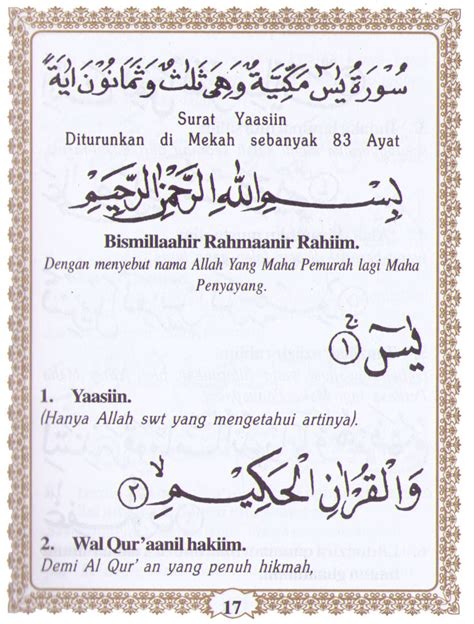 سُوْرَةُ يٰسٓ مَكِّيَّةٌ وَهِيَ ثَلَاثٌ وَثَمَانُوْنَ اٰيَةً
Surat Yaasiin
Diturunkan di Mekah sebanyak 83 Ayat
بِسْمِ اللهِ الرَّحْمٰنِ الرَّحِيْمِ
Bismillaahir Rahmaanir Rahiim.
Dengan menyebut nama Allah Yang Maha Pemurah lagi Maha
Penyayang.
يٰسٓ ۚ ١
1. Yaasiin.
(Hanya Allah swt yang mengetahui artinya).
وَالْقُرْاٰنِ الْحَكِيْمِ ۙ ٢
2. Wal Qur'aanil hakiim.
Demi Al Qur' an yang penuh hikmah,
17